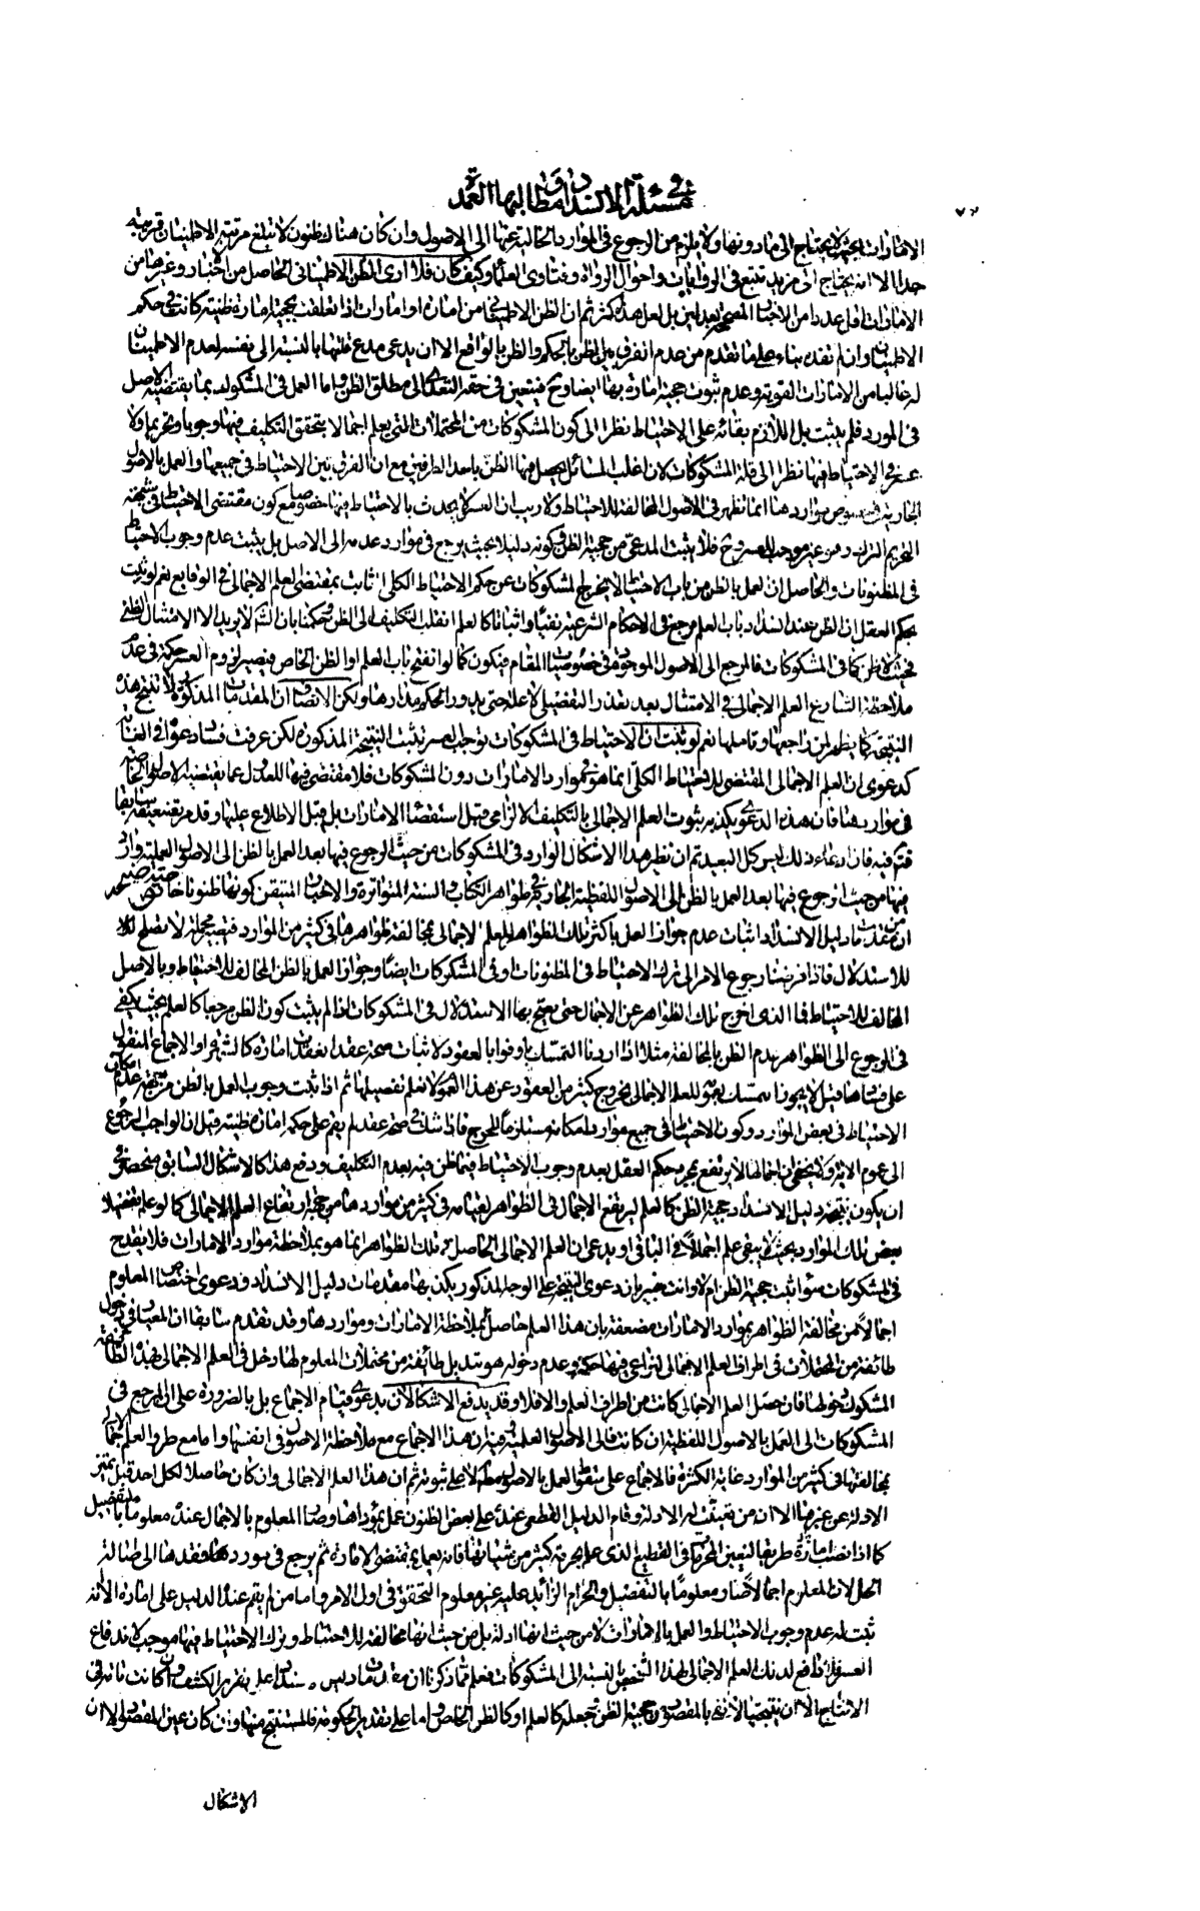 في مسئلة الانسداد ومطالبها العمدة
٧٣
الامارات بحيث لا يحتاج الى مادونها ولا يلزم من الرجوع في الموارد الخالية عنها الى الاصول وان كان هناك ظنون لا تبلغ مرتبة الاطمينان قريبة
جدا الا انه يحتاج الى مزيد تتبع في الروايات واحوال الرواة وفتاوى العلماء وكيف كان فلا ارى الظن الاطمينانى الحاصل من الاخبار وغيرها من
الامارات اقل عددا من الاخبار المصححة بعدلين بل لعل هذا اكثر ثم ان الظن الاطمينانى من امارة او امارات اذا تعلقت بحجية امارة ظنية كانت في حكم
الاطمينان وان لم تفده بناء على ما تقدم من عدم الفرق بين الظن بالحكم والظن بالواقع الا ان يدعى مدع قلتها بالنسبة الى نفسه لعدم الاطمينان
له غالبا من الامارات القوية وعدم ثبوت حجية امارة بها ايضا وح فيتعين في حقه التعدى الى مطلق الظن واما العمل في المشكوك بما يقتضيه الاصل
في المورد فلم يثبت بل اللازم بقائه على الاحتياط نظرا الى كون المشكوكات من المحتملات التى يعلم اجمالا بتحقق التكليف فيها وجوبا وتحريما ولا
عسر في الاحتياط فيها نظرا الى قلة المشكوكات لان اغلب المسائل يحصل فيها الظن باحد الطرفين مع ان الفرق بين الاحتياط في جميعها والعمل بالاصول
الجارية في خصوص مواردها انما تظهر في الاصول المخالفة للاحتياط ولا ريب ان العسر لا يحدث بالاحتياط فيها خصوصا مع كون مقتضى الاحتياط في شبهة
التحريم الترك وهو غير موجب للعسر وح فلا يثبت المدعى من حجية الظن وكونه دليلا بحيث يرجع في موارد عدمه الى الاصل بل يثبت عدم وجوب الاحتياط
في المظنونات والحاصل ان العمل بالظن من باب الاحتياط لا يخرج المشكوكات عن حكم الاحتياط الكلى الثابت بمقتضى العلم الاجمالى في الوقايع نعم لو ثبت
بحكم العقل ان الظن عند انسداد باب العلم مرجع في الاحكام الشرعية نفيا واثباتا كالعلم انقلب التكليف الى الظن وحكمنا بان الشارع لا يريد الا الامتثال الظنى
وحيث لا ظن كما في المشكوكات فالمرجع الى الاصول الموجودة في خصوصيات المقام فيكون كما لو انفتح باب العلم او الظن الخاص فيصير لزوم العسر حكمة في عدم
ملاحظة الشارع العلم الاجمالى في الامتثال بعد تعذر التفصيلى لا علة حتى يدور الحكم مدارها ولكن الانصاف ان المقدمات المذكورة لا تنتج هذه
النتيجة كما يظهر لمن راجعها وتاملها نعم لو ثبت ان الاحتياط في المشكوكات يوجب العسر ثبتت النتيجة المذكورة لكن عرفت فساد دعواه في الغاية
كدعوى ان العلم الاجمالى المقتضى للاحتياط الكلى انما هو في موارد الامارات دون المشكوكات فلا مقتضى فيها للعدول عما يقتضيه الاصول الخاصة
في مواردها فان هذه الدعوى يكذبه ثبوت العلم الاجمالى بالتكليف الالزامى قبل استقصاء الامارات بل قبل الاطلاع عليها وقد مر تضعيفه سابقا
فتامل فيه فان ادعاء ذلك ليس كل البعيد ثم ان نظير هذا الاشكال الوارد في المشكوكات من حيث الرجوع فيها بعد العمل بالظن الى الاصول العملية وارد
فيها من حيث الرجوع فيها بعد العمل بالظن الى الاصول اللفظية الجارية في ظواهر الكتاب والسنة المتواترة والاخبار المتيقن كونها ظنونا خاصة
ان من مقدمات دليل الانسداد اثبات عدم جواز العمل باكثر تلك الظواهر للعلم الاجمالى بمخالفة ظواهرها في كثير من الموارد فتصير مجملة لا تصلح
للاستدلال فاذا فرضنا رجوع الامر الى ترك الاحتياط في المظنونات او في المشكوكات ايضا وجواز العمل بالظن المخالف للاحتياط وبالاصل
المخالف للاحتياط فما الذى اخرج تلك الظواهر عن الاجمال حتى يصح بها الاستدلال في المشكوكات اذ لم يثبت كون الظن مرجعا كالعلم بحيث يكفى
في الرجوع الى الظواهر عدم الظن بالمخالفة مثلا اذا اردنا التمسك باوفوا بالعقود لاثبات صحة عقد انعقدت امارة كالشهرة او الاجماع المنقول
على فسادها قيل لا يجوز التمسك بعمومه للعلم الاجمالى بخروج كثير من العقود عن هذا العموم لا نعلم تفصيلها ثم اذا ثبت وجوب العمل بالظن من جهة عدم امكان
الاحتياط في بعض الموارد وكون الاحتياط في جميع موارد امكانه مستلزما للحرج فاذا شك في صحة عقد لم يقم على حكمه امارة ظنية قيل ان الواجب الرجوع
الى عموم الاية ولا يخفى ان اجمالها لا يرتفع بمجرد حكم العقل بعدم وجوب الاحتياط فيما ظن فيه بعدم التكليف ودفع هذا كالاشكال السابق منحصر في
ان يكون نتيجة دليل الانسداد حجية الظن كالعلم ليرتفع الاجمال في الظواهر لقيامه في كثير من مواردها من جهة ارتفاع العلم الاجمالى كما لو علم تفصيلا
بعض تلك الموارد بحيث لا يبقى علم اجمالا في الباقى او يدعى ان العلم الاجمالى الحاصل في تلك الظواهر انما هو بملاحظة موارد الامارات فلا يقدح
في المشكوكات سواء ثبت حجية الظن ام لا وانت خبير بان دعوى النتيجة على الوجه المذكور يكذبها مقدمات دليل الانسداد ودعوى اختصاص المعلوم
اجمالا من مخالفة الظواهر بموارد الامارات مضعفة بان هذا العلم حاصل بملاحظة الامارات ومواردها وقد تقدم سابقا ان المعيار في دخول
طائفة من المحتملات في اطراف العلم الاجمالى لنراعى فيها حكمه وعدم دخوله هو تبديل طائفة من محتملات المعلوم لها دخل في العلم الاجمالى بهذه الطائفة
المشكوك دخولها فان حصل العلم الاجمالى كانت من اطراف العلم والا فلا وقد يدفع الاشكالان بدعوى قيام الاجماع بل الضرورة على المرجع في
المشكوكات الى العمل بالاصول اللفظية ان كانت والا فالى الاصول العملية وفيه ان هذا الاجماع مع ملاحظة الاصول في انفسها واما مع طرو العلم الاجمالى
بمخالفتها في كثير من الموارد غاية الكثرة فالاجماع على سقوط العمل بالاصول مطلقا لا على ثبوته ثم ان هذا العلم الاجمالى وان كان حاصلا لكل احد قبل تميز
الادلة عن غيرها الا ان من تعينت له الادلة وقام الدليل القطعى عنده على بعض الظنون عمل بمؤداها وصار المعلوم بالاجمال عنده معلوما بالتفصيل
كما اذا نصب امارة طريقا لتعيين المحرمات في القطيع الذى علم بحرمة كثير من شياهها فانه يعمل بمقتضى الامارة ثم يرجع في مورد فقدها الى اصالة
الحل لان المعلوم اجمالا صار معلوما بالتفصيل والحرام الزائد عليه غير معلوم التحقق في اول الامر واما من لم يقم عنده الدليل على امارة الا انه
ثبت له عدم وجوب الاحتياط والعمل بالامارات لا من حيث انها ادلة بل من حيث انها مخالفة للاحتياط وترك الاحتياط فيها موجب لاندفاع
العسر فلا رافع لذلك العلم الاجمالى لهذا الشخص بالنسبة الى المشكوكات فعلم مما ذكرنا ان مقدمات دليل الانسداد على تقرير الكشف وان كانت تامة في
الانتاج الا ان نتيجتها لا تفى بالمقصود من حجية الظن وجعله كالعلم او كالظن الخاص واما على تقدير الحكومة فالمستنتج منها وان كان عين المقصود الا ان
الاشكال